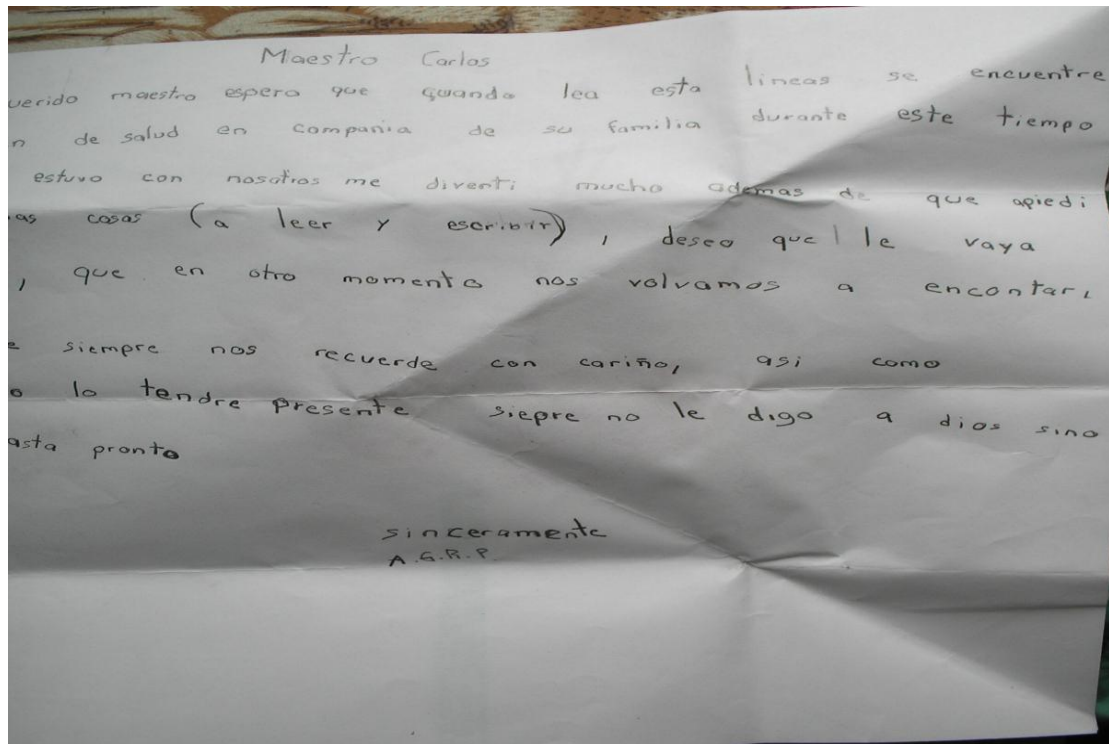 Maestro Carlos
uerido maestro espero que quando lea esta lineas se encuentre
n de salud en compania de su familia durante este tiempo
estuvo con nosotros me diverti mucho ademas de que apiedi
as cosas (a leer y escribir), deseo que le vaya
, que en otro momento nos volvamos a encontar,
e siempre nos recuerde con cariño, asi como
o lo tendre presente siepre no le digo a dios sino
asta pronto
sinceramente
A.G.R.P.